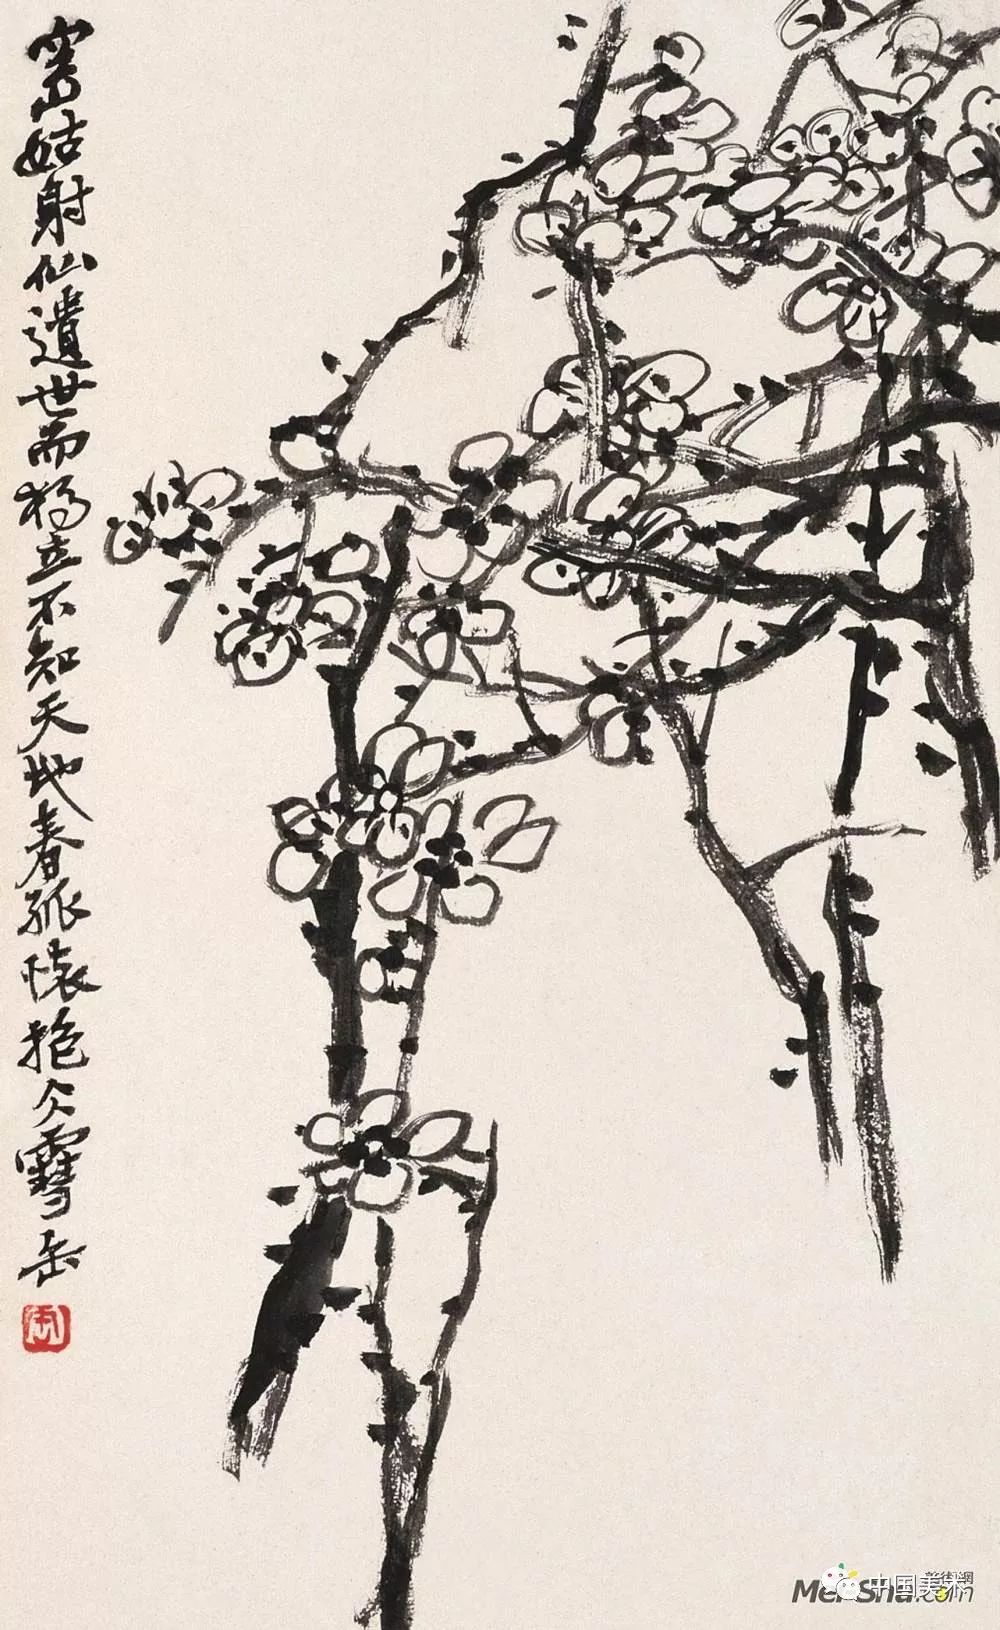 姑射仙遺世而獨立不知天地春孤懷抱仌雪缶
中国美术